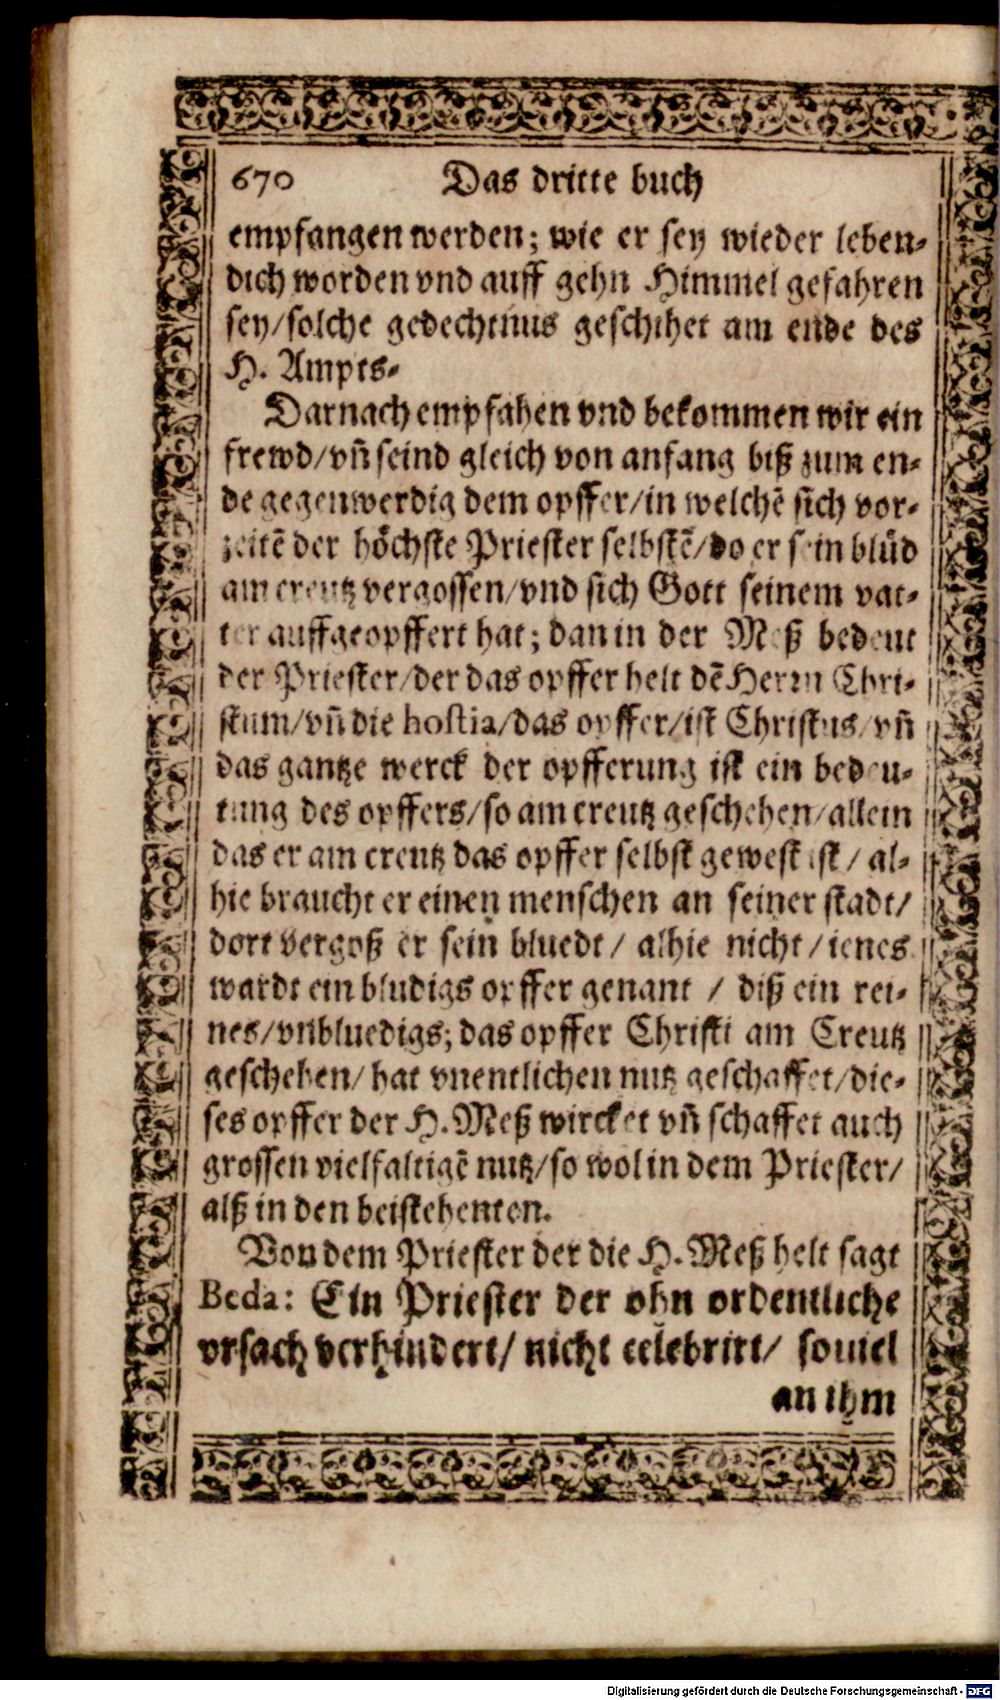 670 Das dritte buch
empfangen werden; wie er sey wieder leben-
dich worden vnd auff gehn Himmel gefahren
sey/solche gedechtnus geschihet am ende des
H. Ampts-
Darnach empfahen vnd bekommen wir ein
frewd/vñ seind gleich von anfang biß zum en-
de gegenwerdig dem opffer/in welchẽ sich vor-
zeitẽ der höchste Priester selbstẽ/do er sein blůd
am creutz vergossen/vnd sich Gott seinem vat-
ter auffgeopffert hat; dan in der Meß bedeut
der Priester/der das opffer helt dẽ Herrn Chri-
stum/vñ die hostia/das opffer/ist Christus/vñ
das gantze werck der opfferung ist ein bedeu-
tung des opffers/so am creutz geschehen/allein
das er am creutz das opffer selbst gewest ist/ al-
hie braucht er einen menschen an seiner stadt/
dort vergoß er sein bluedt/ alhie nicht/ienes
wardt ein bludigs opffer genant / diß ein rei-
nes/vnbluedigs; das opffer Christi am Creutz
geschehen/ hat vnentlichen nutz geschaffet/die-
ses opffer der H. Meß wircket vñ schaffet auch
grossen vielfaltigẽ nutz/so wol in dem Priester/
alß in den beistehenten.
Von dem Priester der die H. Meß helt sagt
Beda: Ein Priester der ohn ordentliche
vrsach verhindert/ nicht celebrirt/ souiel
an ihm
Digitalisierung gefördert durch die Deutsche Forschungsgemeinschaft - DFG